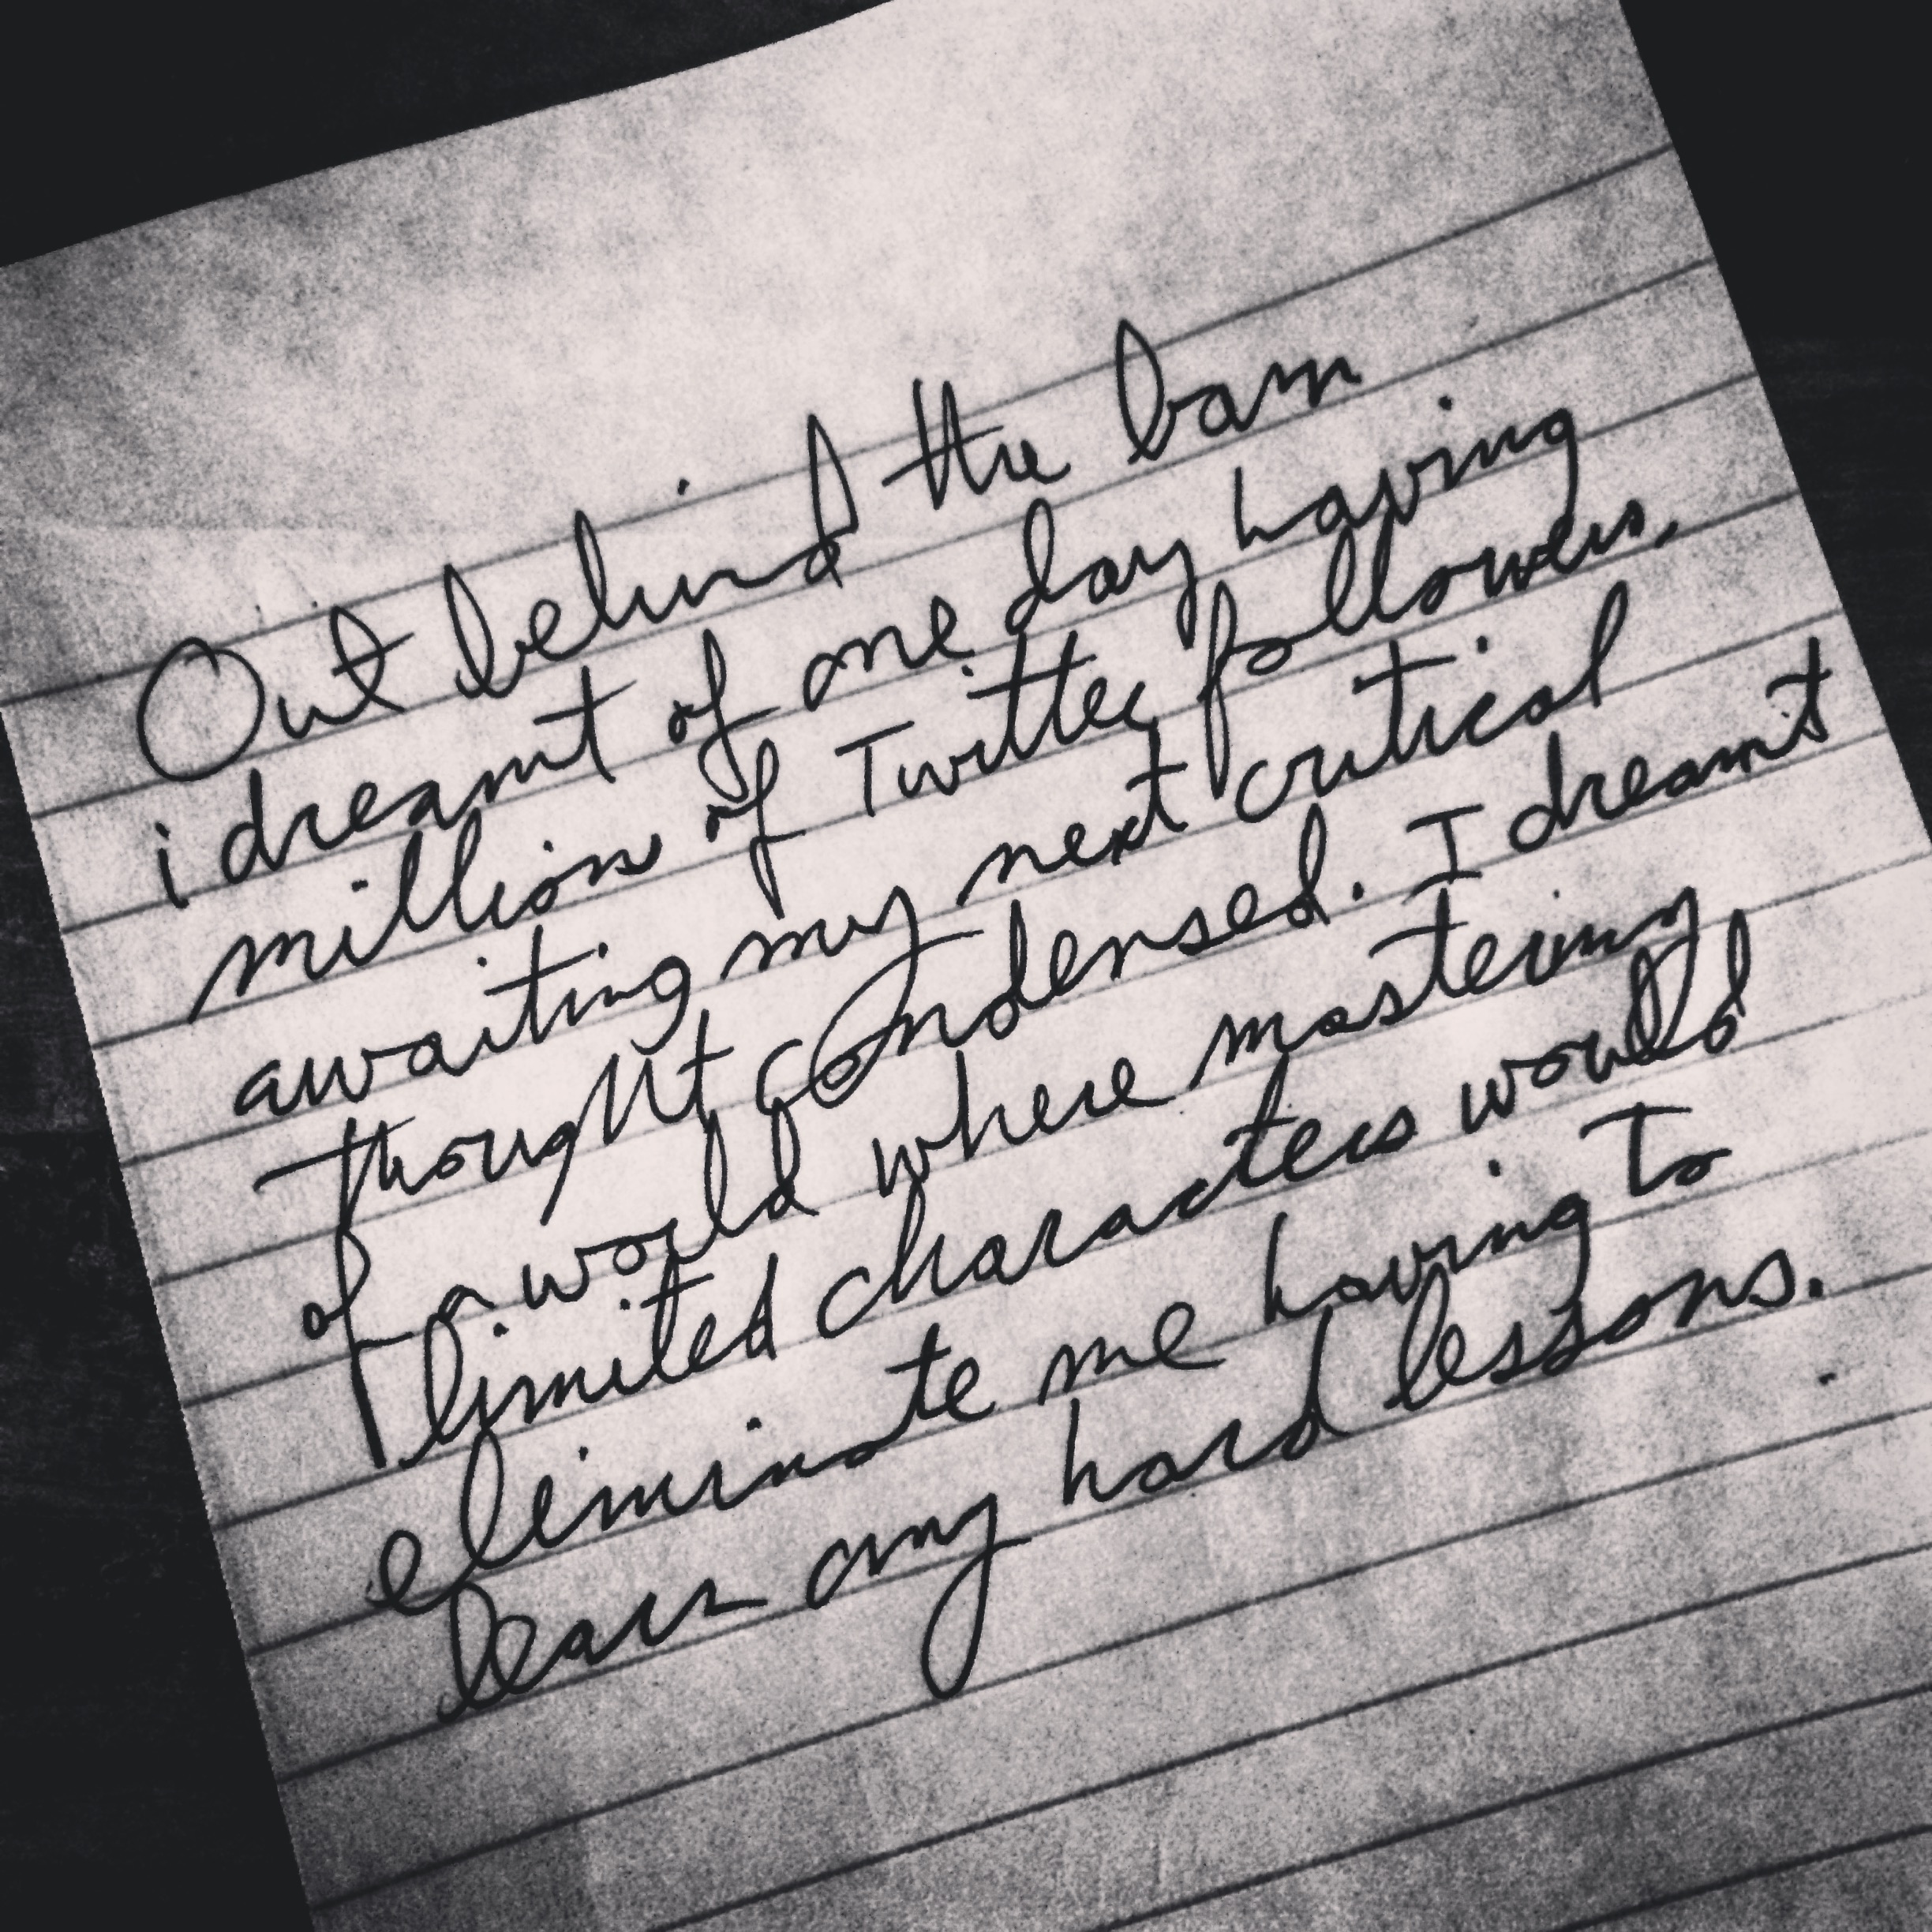 Out behind the barn
i dreamt of one day having
millions of Twitter followers,
awaiting my next critical
thought condensed. I dreamt
of a world where mastering
limited characters would
eliminate me having to
learn any hard lessons.